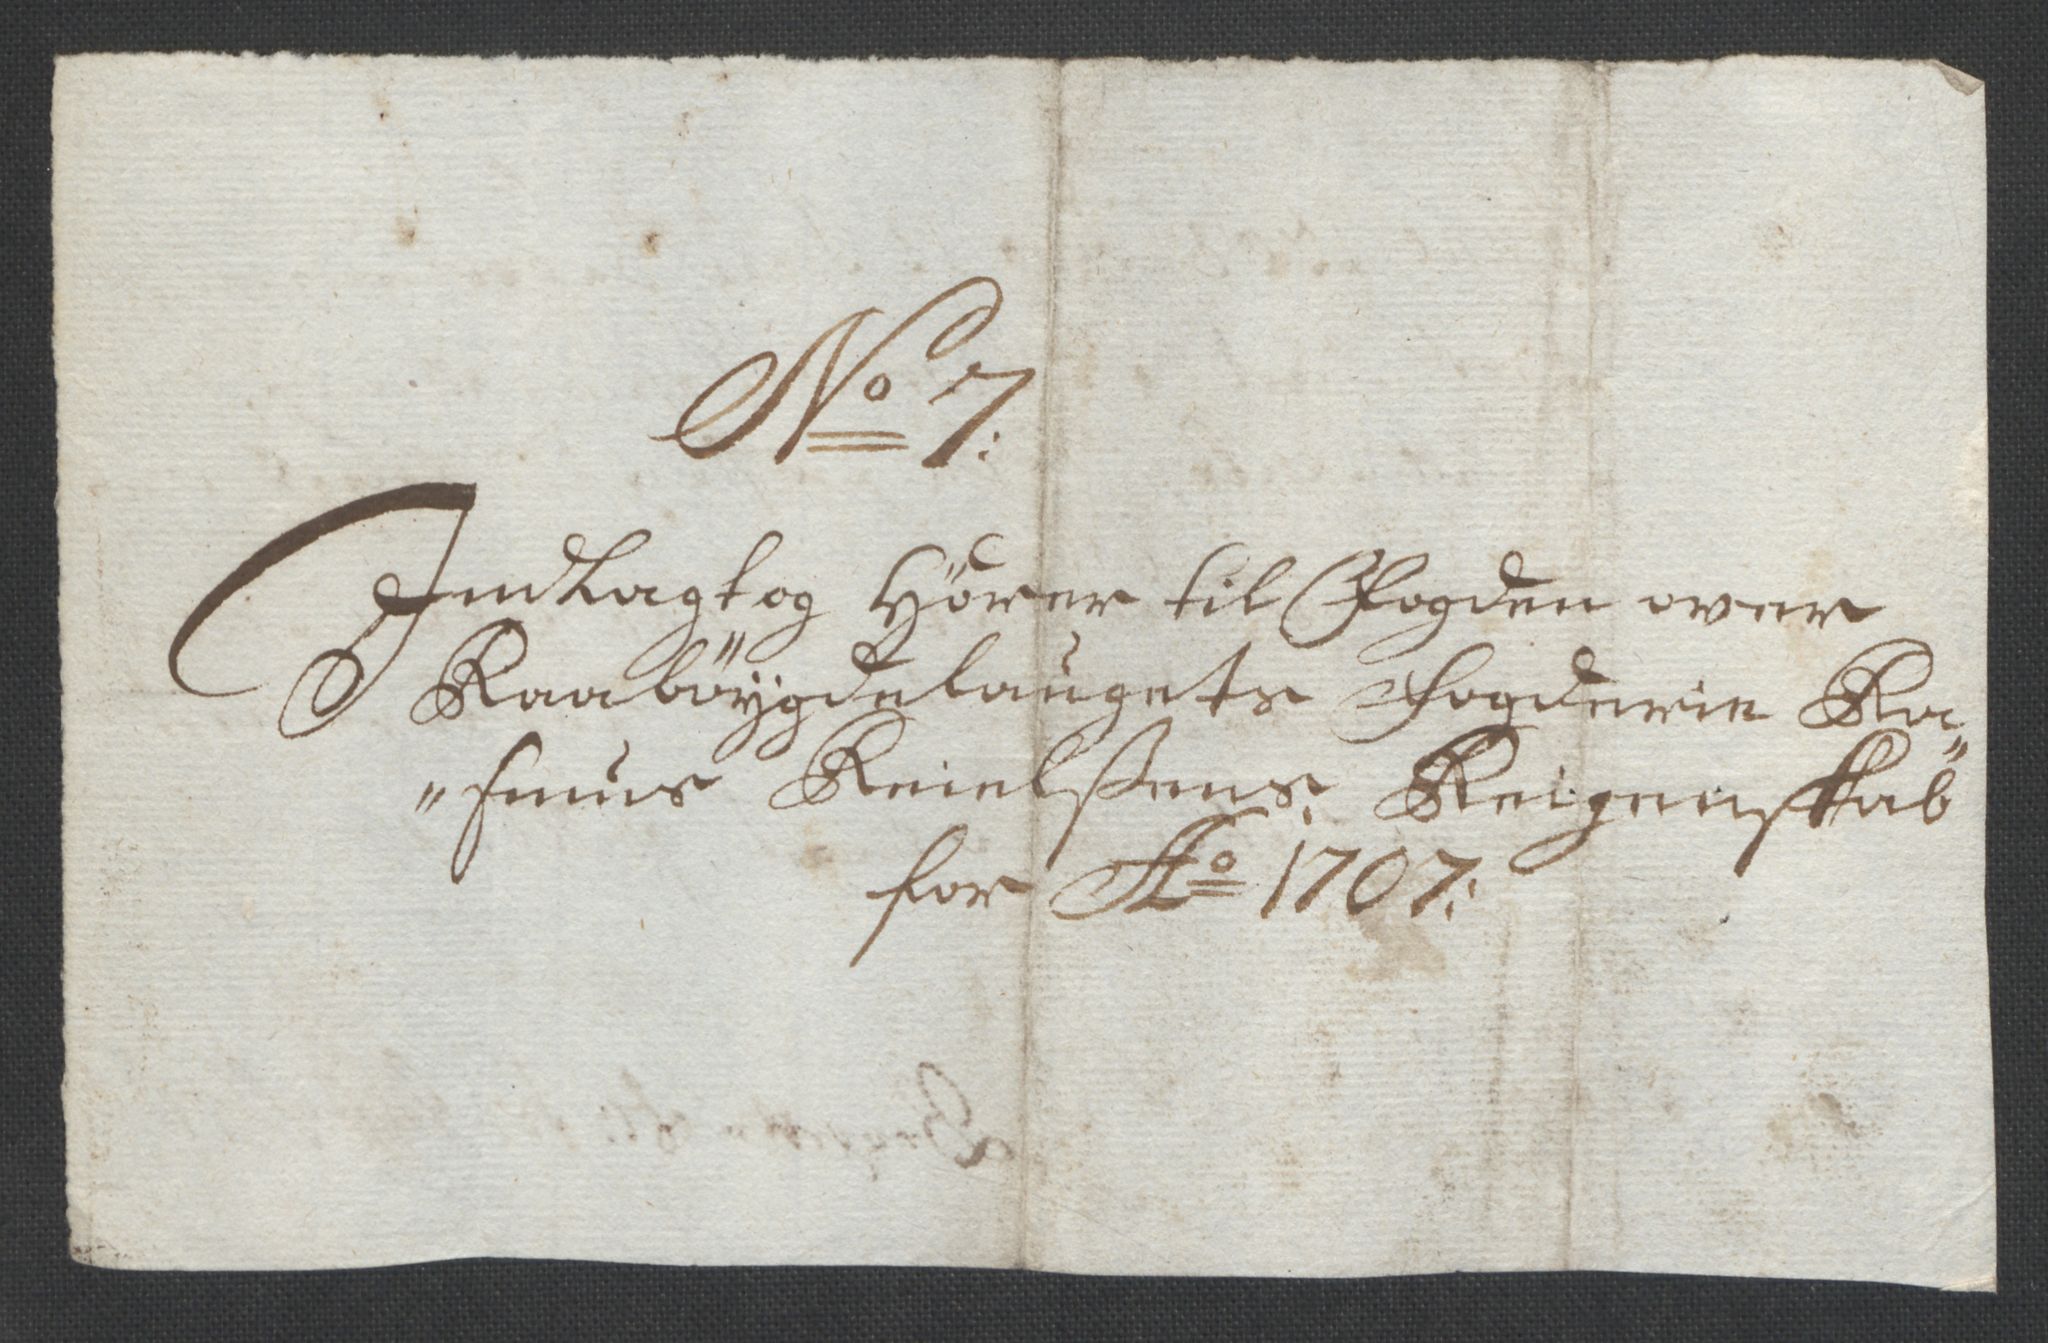 No 7:
Indlagt og Hörer til Fogden over
Raaböygdelaugets Fogderie Ra„
„smus Keielssens Reigenskab
for Ao 1707: